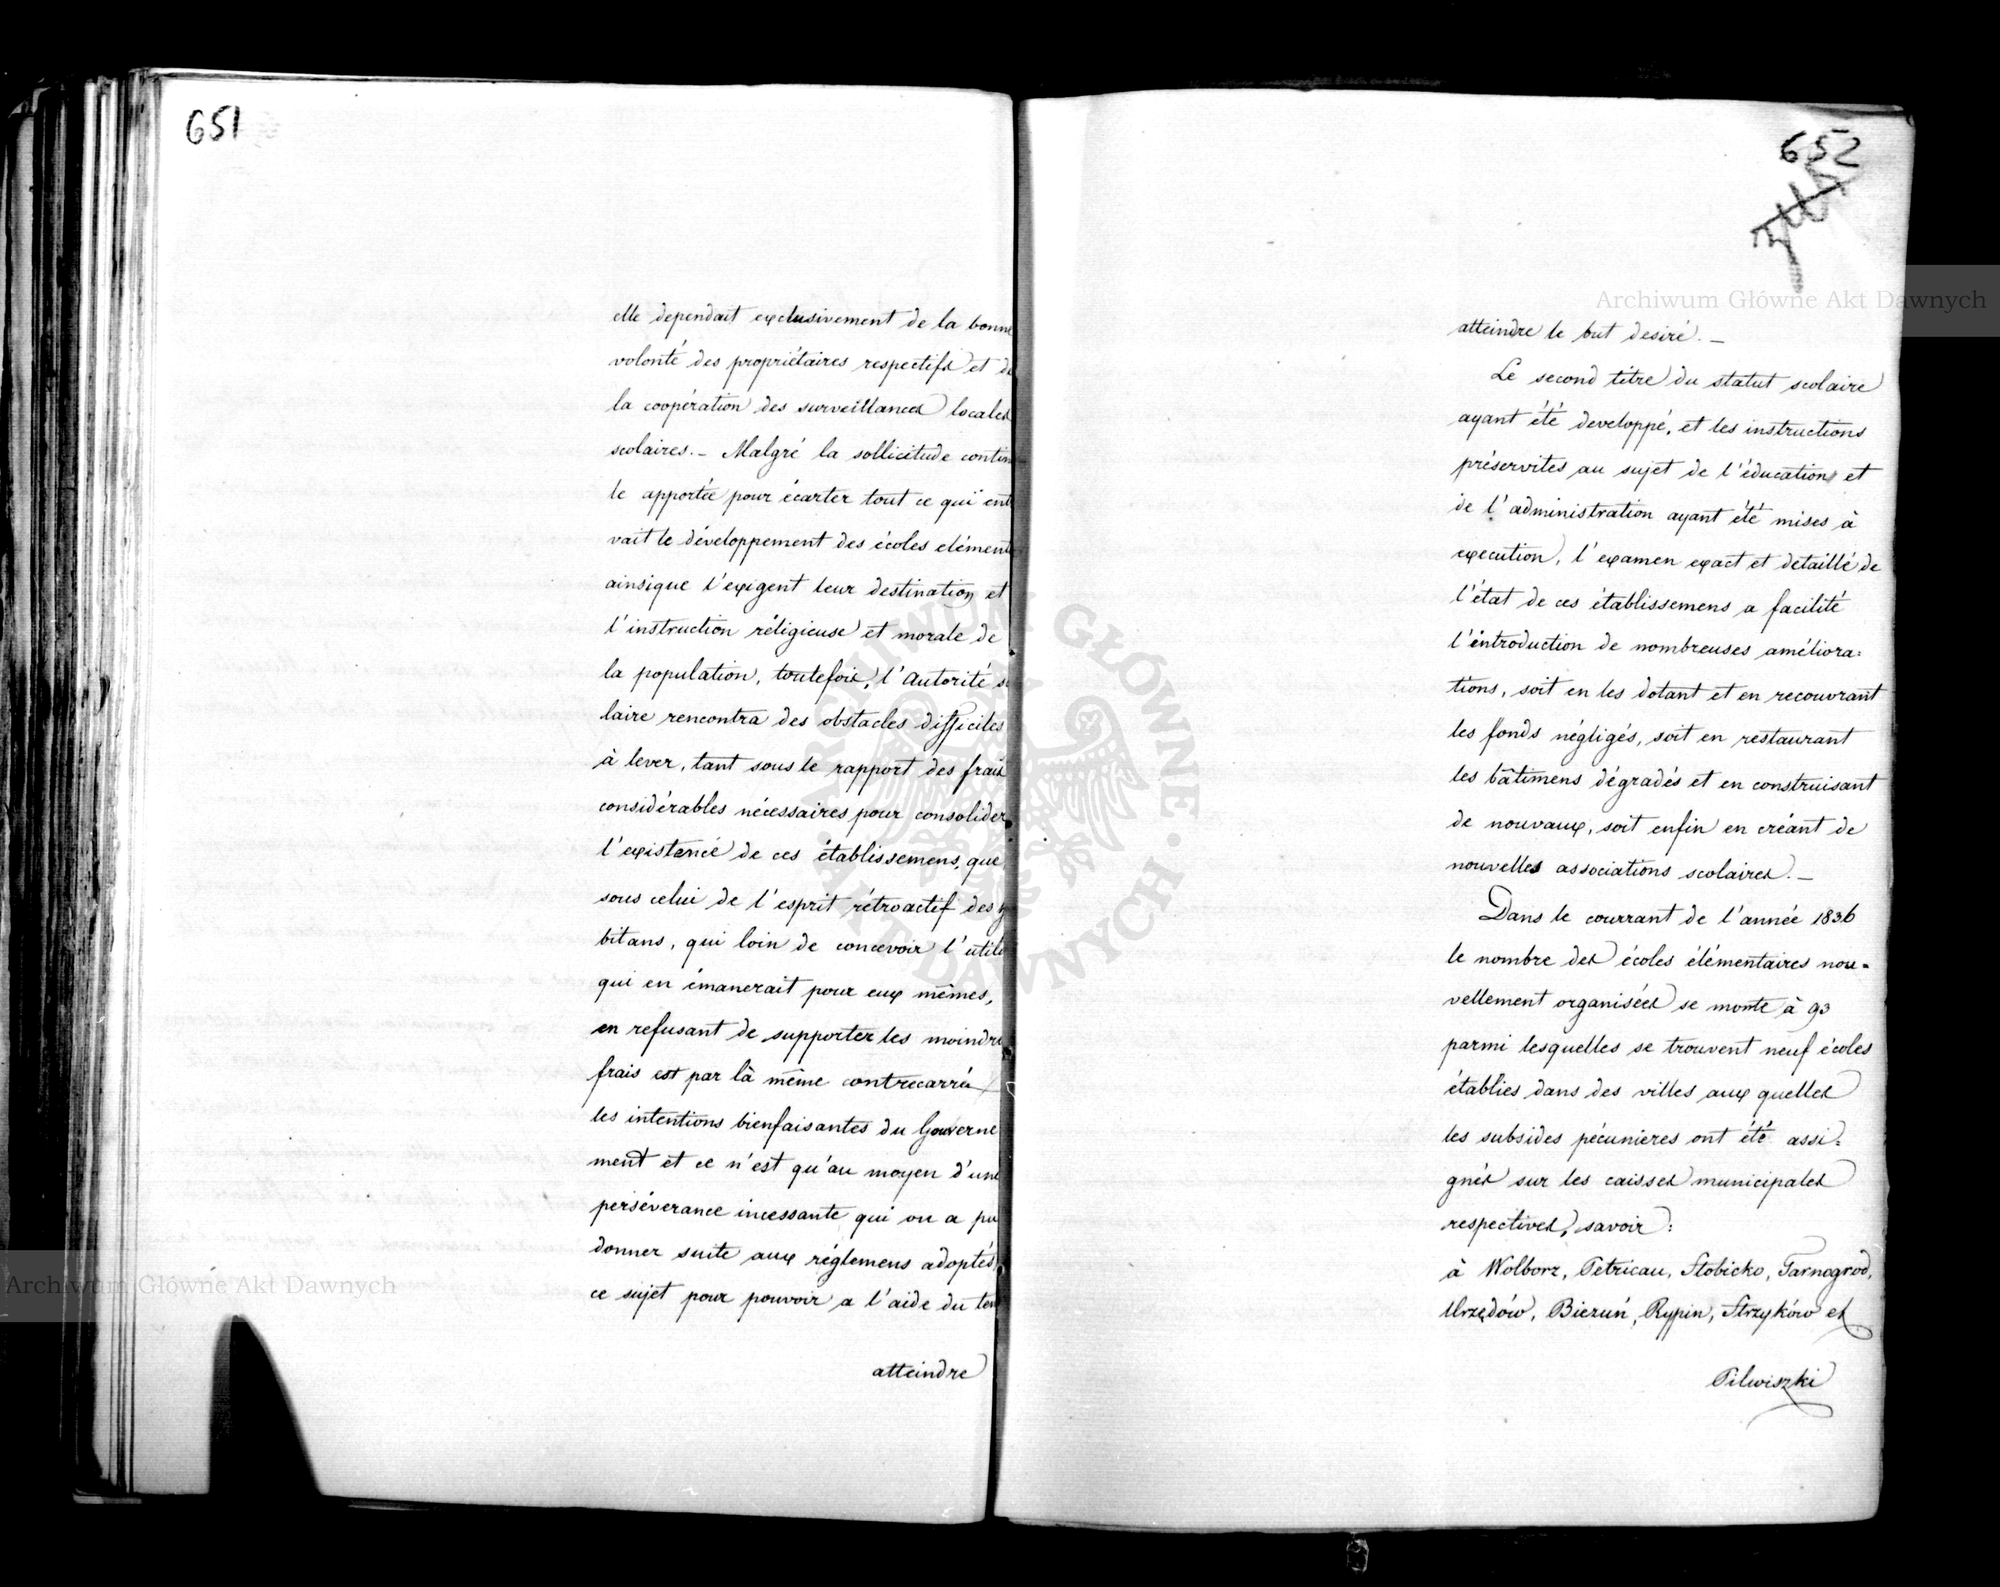 651
elle dependait exclusivement de la bonne
volonté des propriétaires respectifs et de
la coopération des surveillances locales
scolaires. – Malgré la sollicitude contin
le apportée pour écarter tout ce qui ent
vait le développement des écoles elément
ainsique l'exigent leur destination et
l'instruction réligieuse et morale de
la population, toutefois, l'Autorité s
laire rencontra des obstacles difficiles
à lever, tant sous le rapport des frais
considérables nécessaires pour consolider
l'existence de ces établissemens, que
sous celui de l'esprit rétroactif des
bitans, qui loin de concevoir l'utili
qui en émanerait pour eux mêmes,
en refusant de supporter les moindre
frais est par là même contrecarré
les intentions bienfaisantes du Gouverne
ment et ce n'est qu'au moyen d'une
perséverance incessante qui ou a pu
donner suite aux réglemens adoptés
ce sujet pour pouvoir a l'aide du tem
atteindre
652
atteindre le but desiré. –
Le second titre du statut scolaire
ayant été developpé, et les instructions
préscrites au sujet de l'éducation et
de l'administration ayant été mises à
execution, l'examen exact et detaillé de
l'état de ces établissemens a facilité
l'introduction de nombreuses améliora=
tions, soit en les dotant et en recouvrant
les fonds négligés, soit en restaurant
les bâtimens dégradés et en construisant
de nouvaux, soit enfin en créant de
nouvelles associations scolaires. –
Dans le courrant de l'année 1836
le nombre des écoles élémentaires nou=
vellement organisées se monte à 93
parmi lesquelles se trouvent neuf écoles
établies dans des villes aux quelles
les subsides pécunieres ont été assi=
gnés sur les caisses municipales
respectives, savoir:
à Wolborz, Petricau, Stobicko, Tarnogrod,
Urzędów, Bieżuń, Rypin, Strzyków et
Pilwiszki
Archiwum Główne Akt Dawnych
Archiwum Główne Akt Dawnych
ARCHIWUM GŁÓWNE AKT DAWNYCH